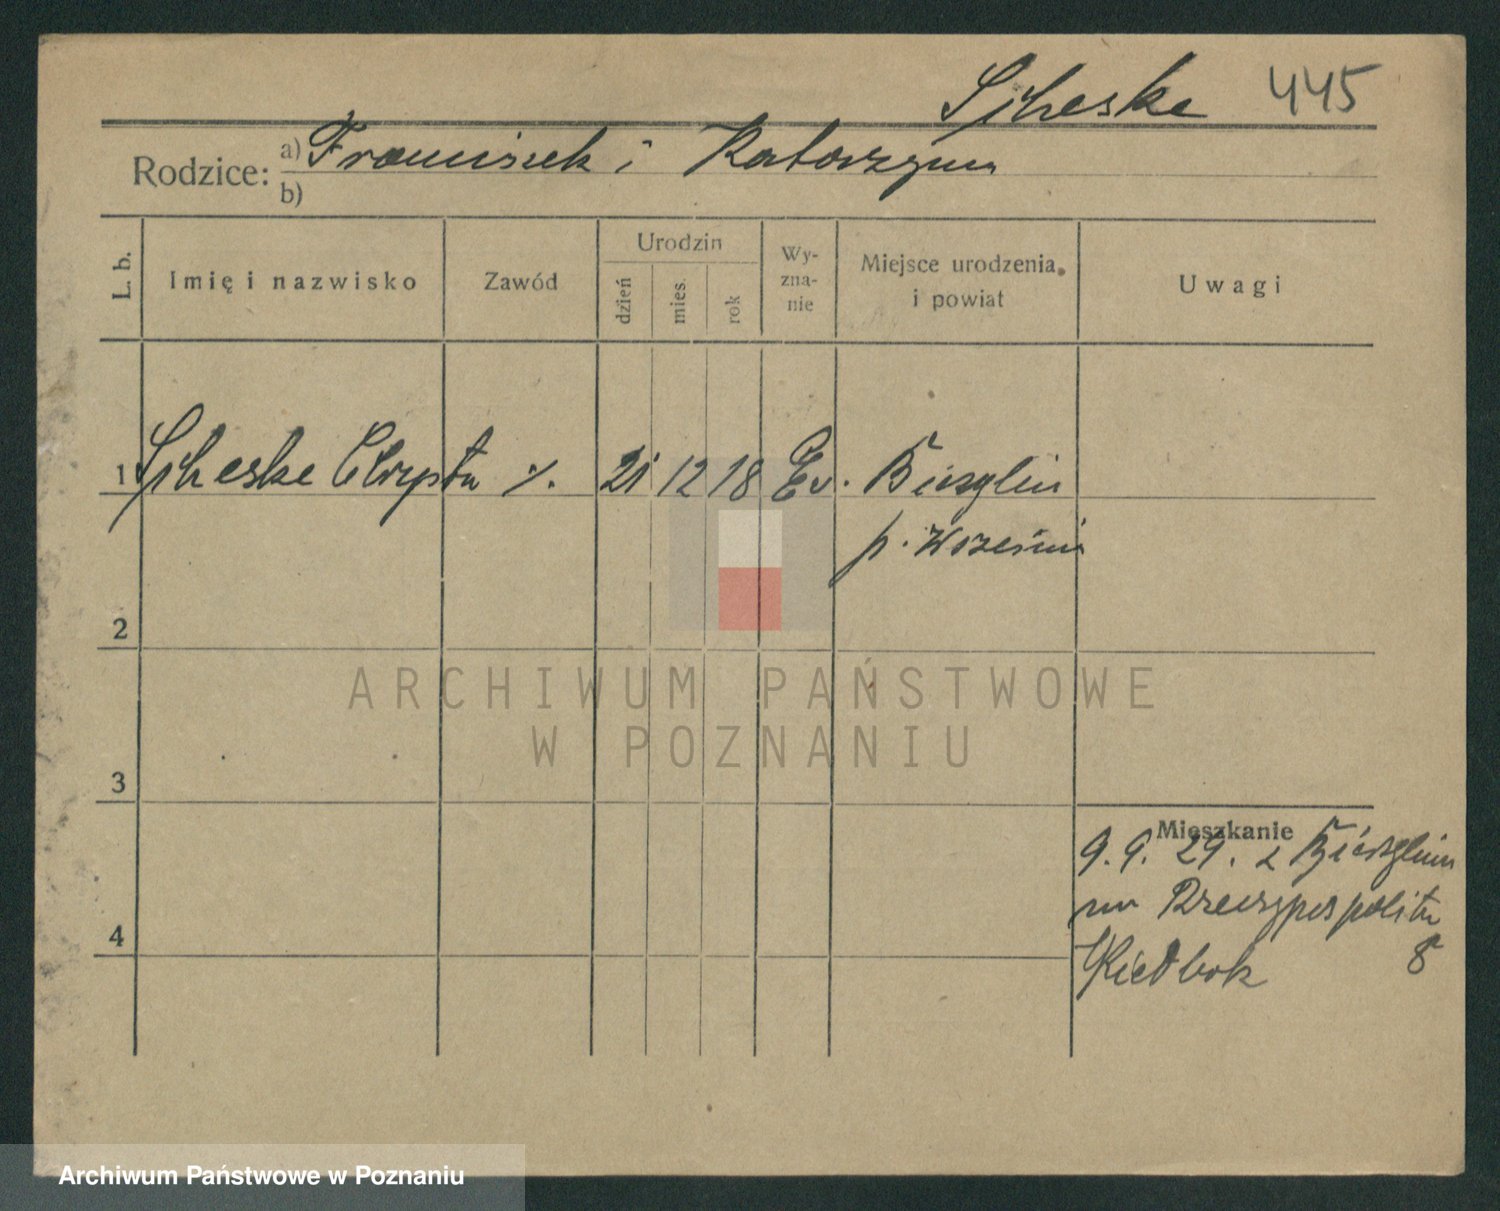 Scheske 445
Rodzice: a) Franciszek i Katarzyna
b)
L. b.
Imię i nazwisko
Zawód
Urodzin
dzień
mies.
rok
Wy-
zna-
nie
Miejsce urodzenia
i powiat
Uwagi
1 Scheske %. 21 12 18 Ev. Bierzglin
p. Wrześni
2
3
4
Mieszkanie
9. 9. 29. z Bierzglin
na Rzeczypospolita
8
ARCHIWUM PAŃSTWOWE
W POZNANIU
Archiwum Państwowe w Poznaniu